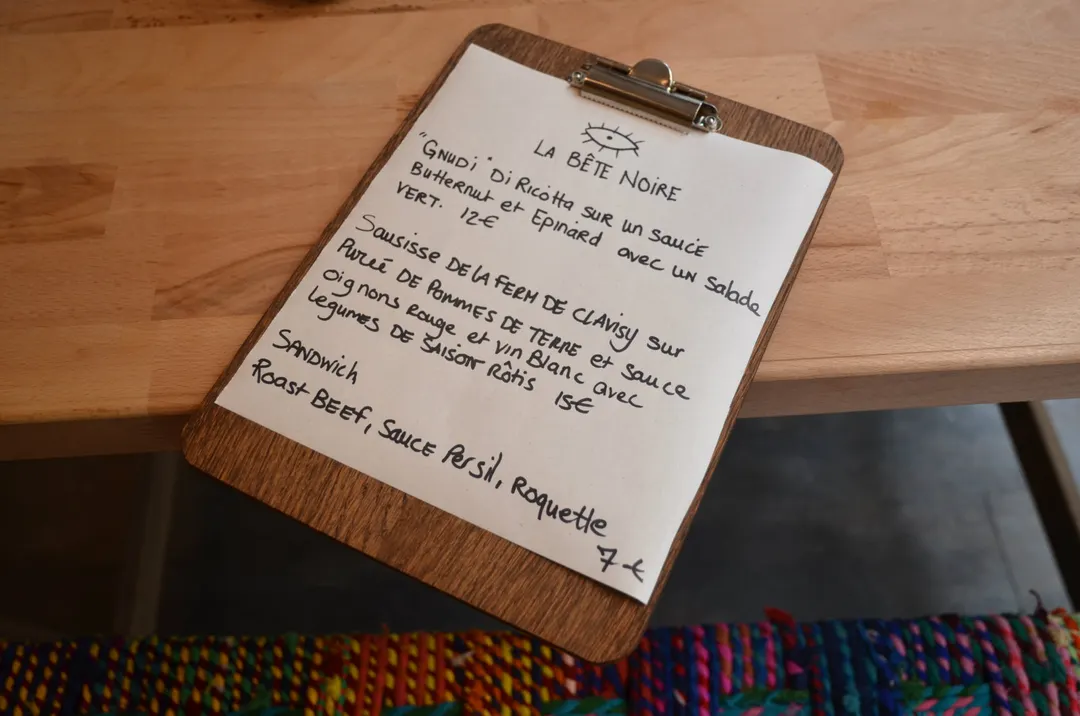 LA BÊTE NOIRE
"GNUDi" Di Ricotta SUR un SAUCE
Butternut et EpinARD avec un Salade
VERT. 12€
Sausisse DE LA FERM DE CLAVISY sur
Purée DE POMMES DE TERRE et sauce
oignons rouge et vin Blanc avec
legumes DE SAISON Rôtis 15€
SANDWich
Roast BEEf, SAUCE Persil, Roquette
7€